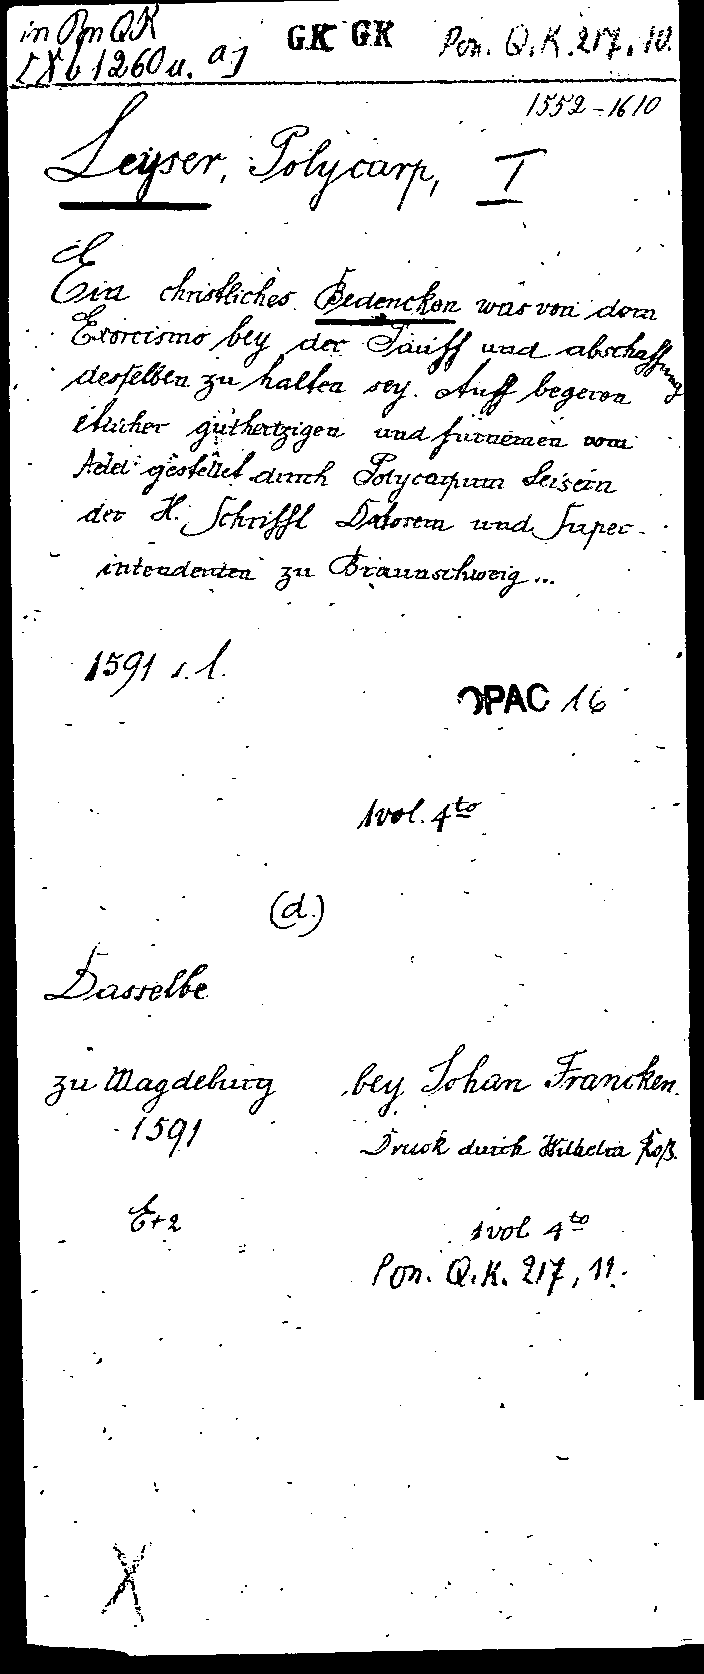 in Pon QK
[Xb 1260 u. a]
GK GK
Pon. Q.K. 217, 10.
1552-1610
Leyser, Polycarp, I
Ein christliches Bedencken was von dem
Exorcismo bey der Tauff und abschaffung
desselben zu halten sey. Auff begeren
etlicher guthertzigen und fürnemen vom
Adel gestellet durch Polycarpum Leisern
der H. Schrifft Doctorem und Super-
intendenten zu Braunschweig...
1591 s. l.
OPAC 16
1 vol. 4to
(d.)
Dasselbe
zu Magdeburg bey Johan Francken.
1591 Druck durch Wilhelm Roß.
E+2 1 vol 4to
Pon. Q.K. 217, 11.
X